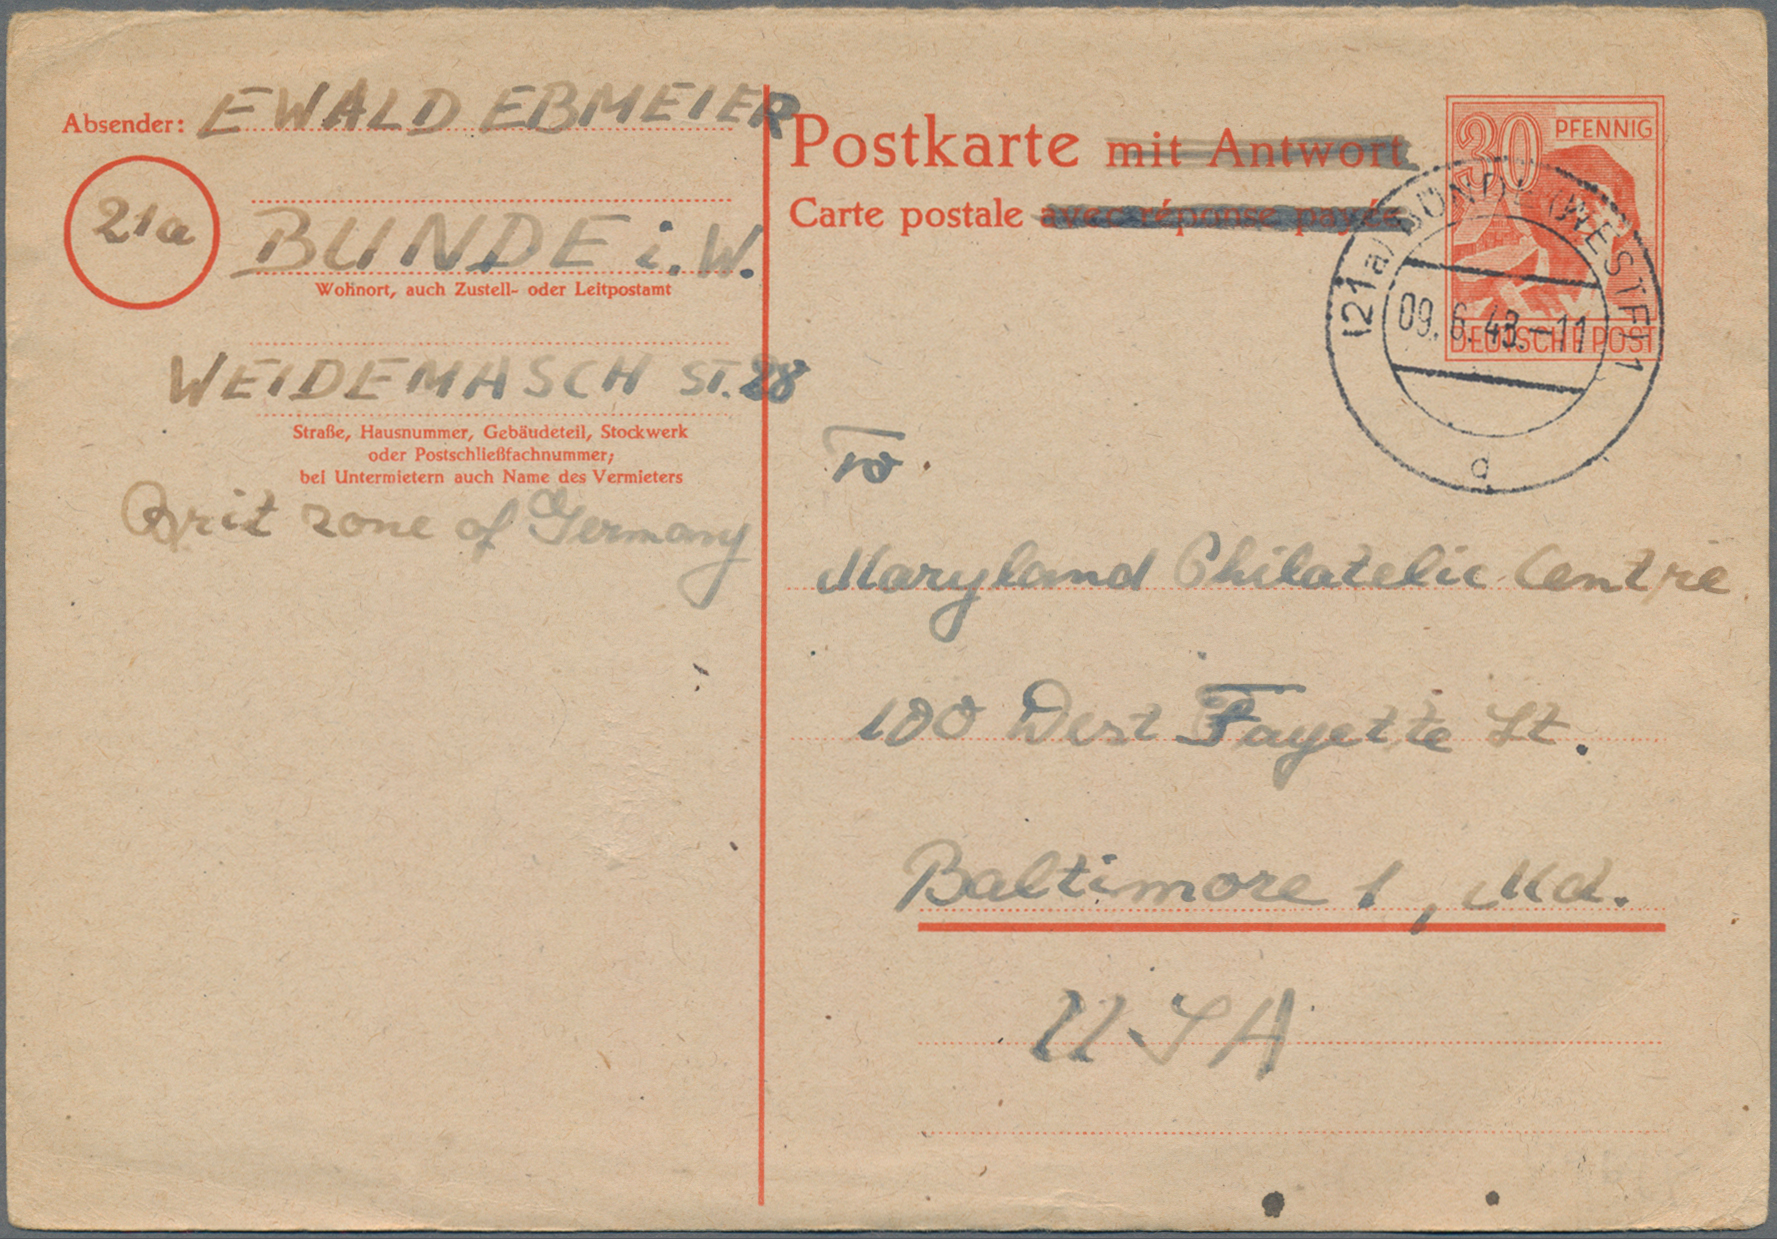 Absender: EWALD EBMEIER
21a
BUNDE i. W.
Wohnort, auch Zustell- oder Leitpostamt
WEIDEMASCH ST. 28
Straße, Hausnummer, Gebäudeteil, Stockwerk
oder Postschließfachnummer;
bei Untermietern auch Name des Vermieters
Brit zone of Germany
Postkarte mit Antwort
Carte postale avec réponse payée
30 PFENNIG
DEUTSCHE POST
(21a) BÜNDE (WESTF) 1
09.6.48.-11
d
To
Maryland Philatelic Centre
100 West Fayette St.
Baltimore 1, Md.
USA